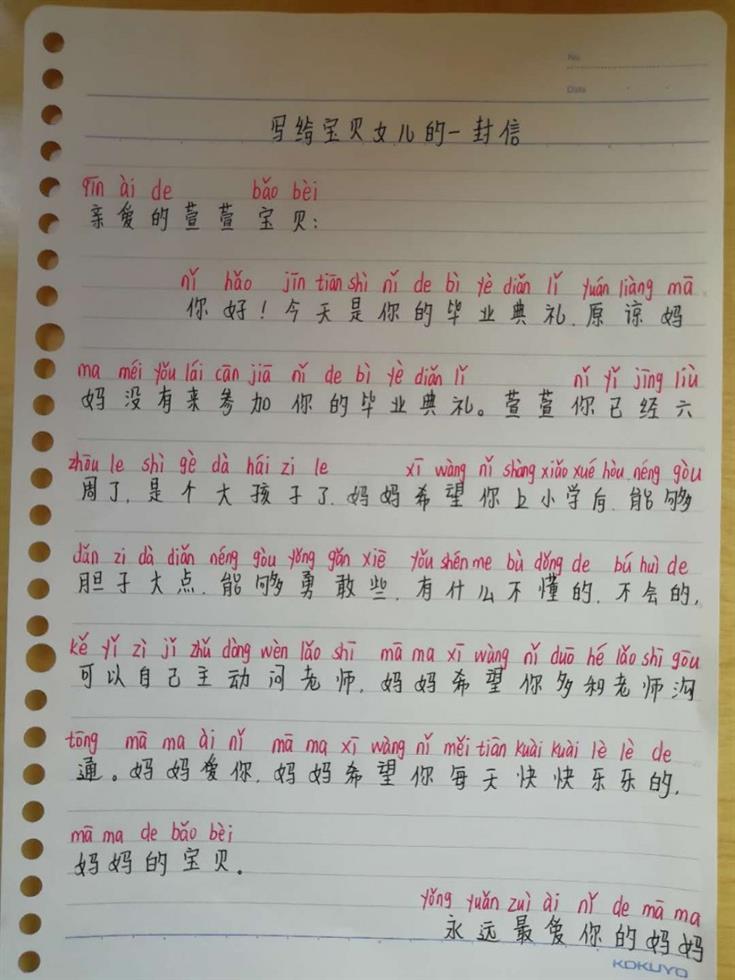 No
Date
写给宝贝女儿的一封信
qīn ài de bǎo bèi
亲爱的萱萱宝贝:
nǐ hǎo jīn tiān shì nǐ de bì yè diǎn lǐ yuán liàng mā
你好!今天是你的毕业典礼.原谅妈
ma méi yǒu lái cān jiā nǐ de bì yè diǎn lǐ nǐ yǐ jīng liù
妈没有来参加你的毕业典礼。萱萱你已经六
zhōu le shì gè dà hái zi le xī wàng nǐ shàng xiǎo xué hòu néng gòu
周了.是个大孩子了.妈妈希望你上小学后.能够
dǎn zi dà diǎn néng gòu yǒng gǎn xiē yǒu shén me bù dǒng de bú huì de
胆子大点.能够勇敢些.有什么不懂的.不会的,
kě yǐ zì jǐ zhǔ dòng wèn lǎo shī mā ma xī wàng nǐ duō hé lǎo shī gōu
可以自己主动问老师.妈妈希望你多和老师沟
tōng mā ma ài nǐ mā ma xī wàng nǐ měi tiān kuài kuài lè lè de
通。妈妈爱你.妈妈希望你每天快快乐乐的,
mā ma de bǎo bèi
妈妈的宝贝。
yǒng yuǎn zuì ài nǐ de mā ma
永远最爱你的妈妈
KOKUYO